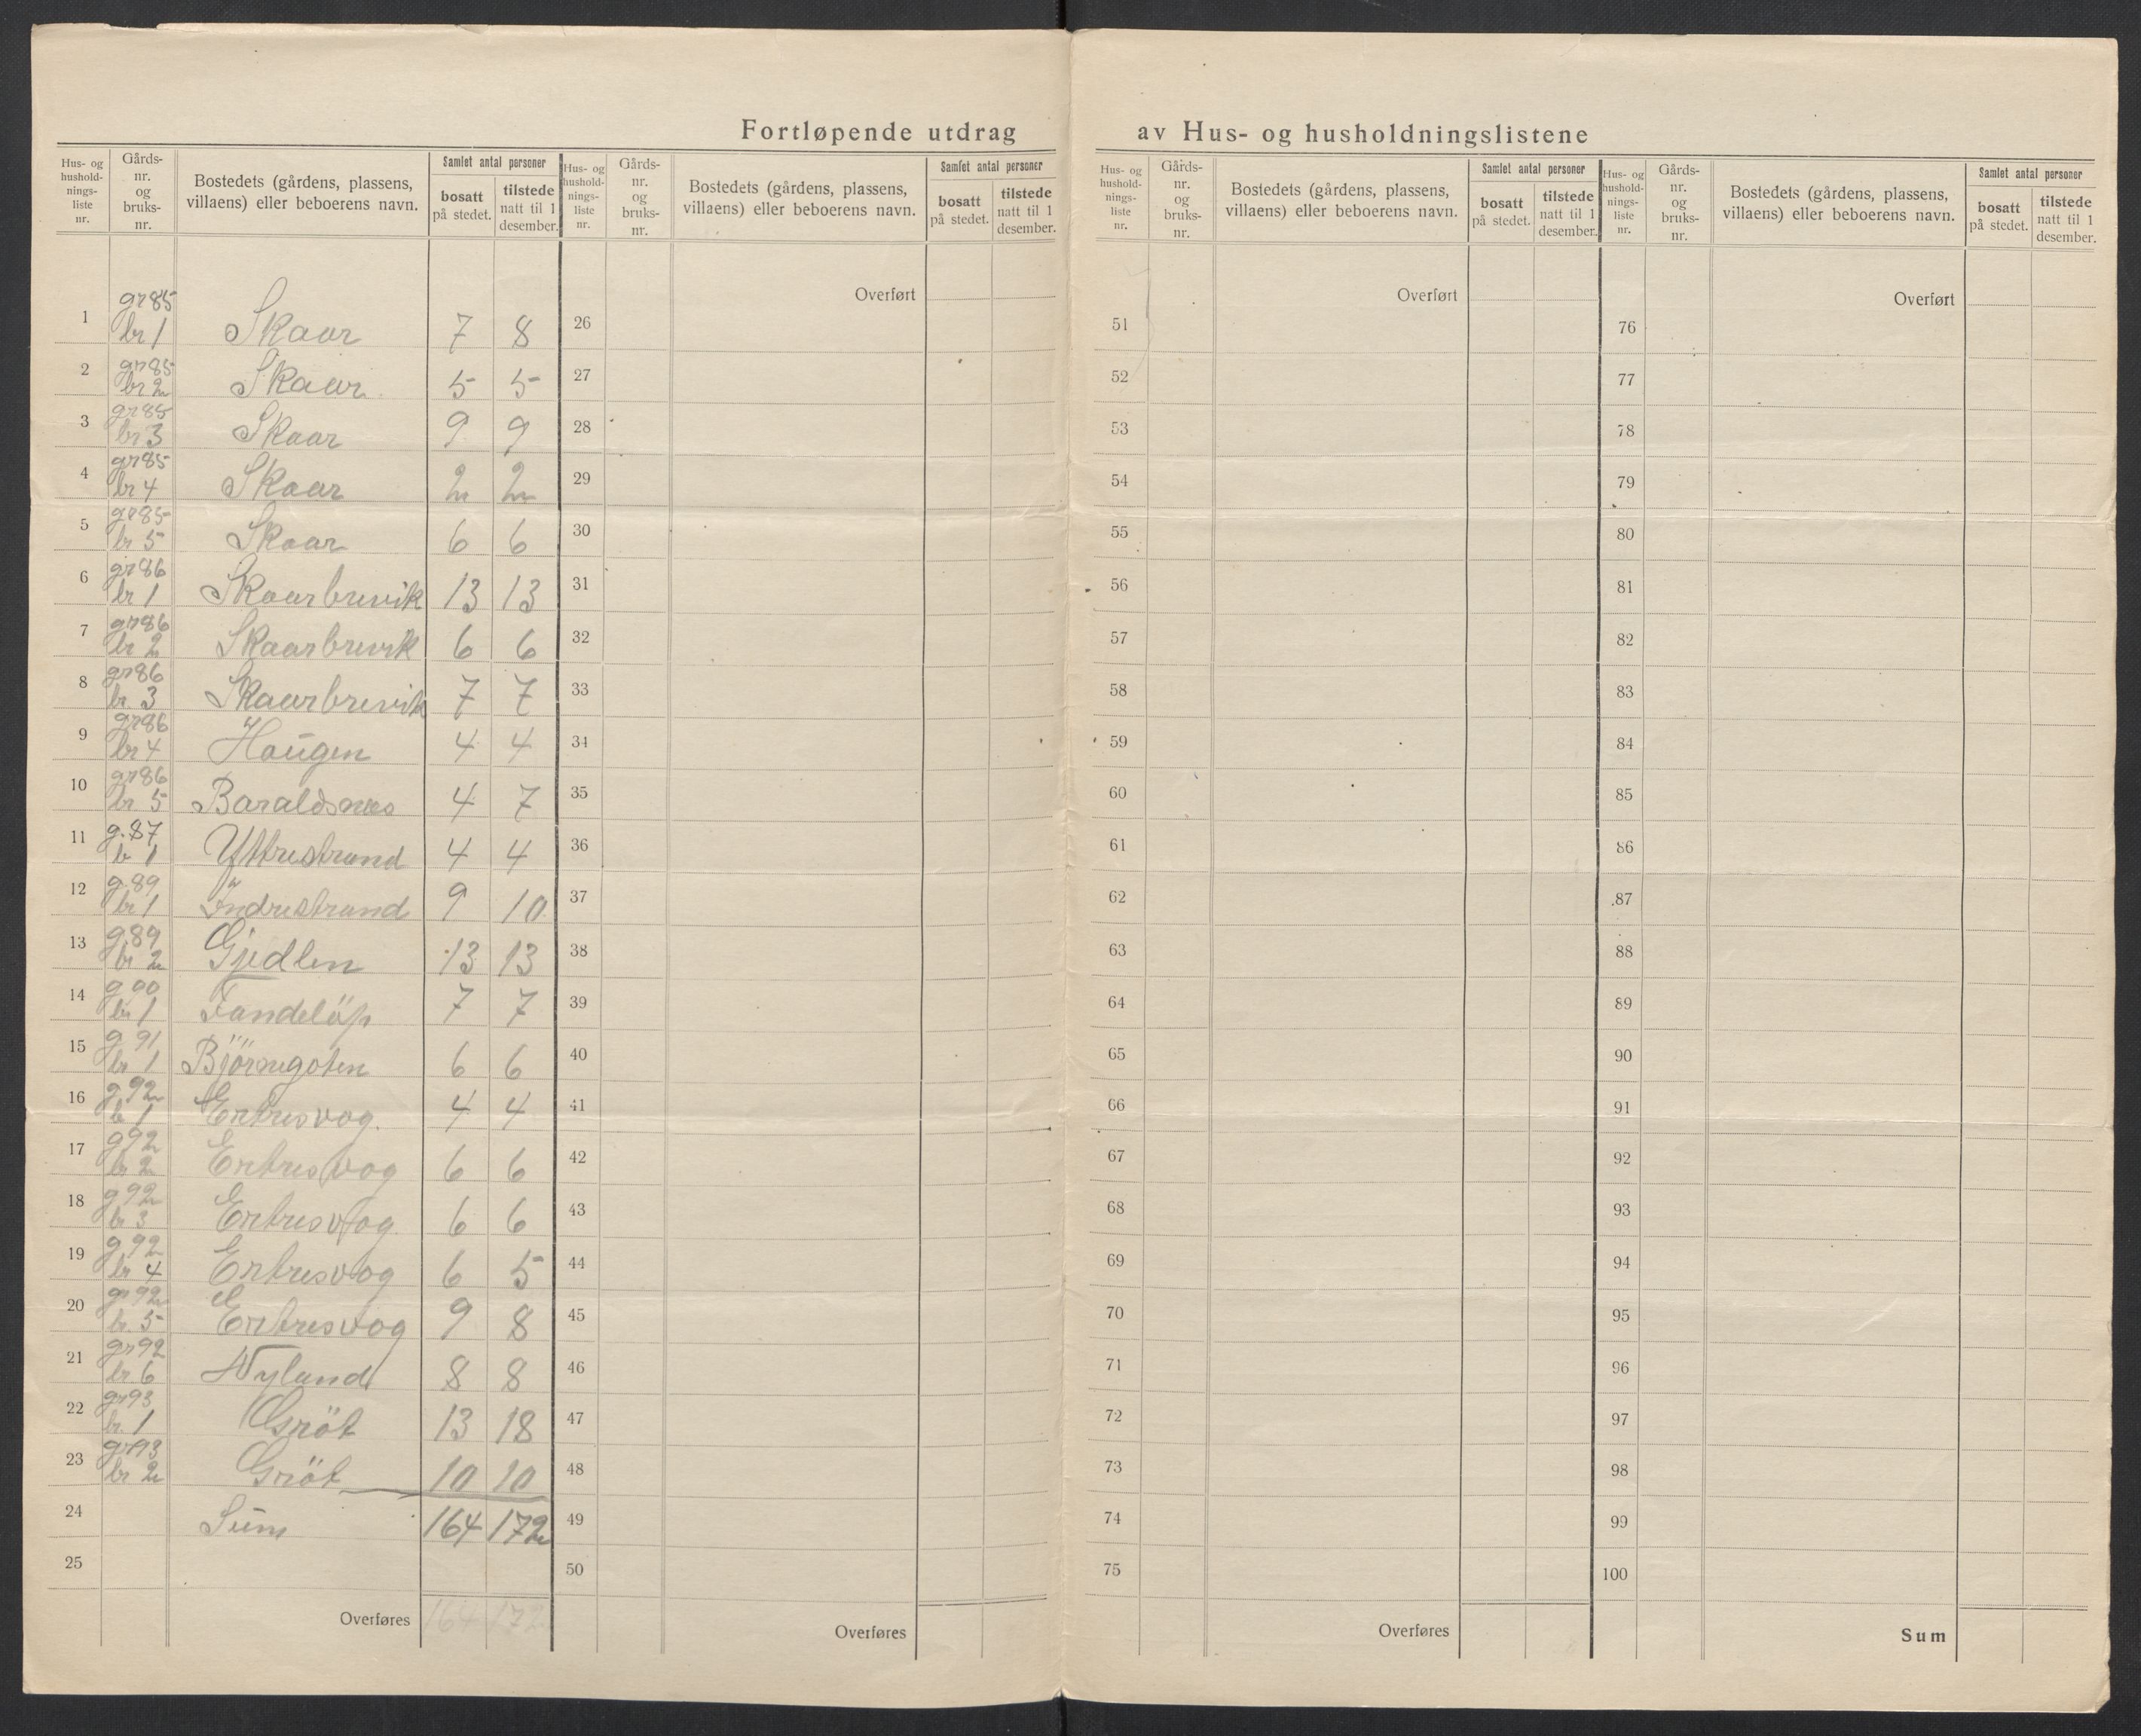 Fortløpende utdrag av Hus- og husholdningslistene
Hus- og husholdningsliste nr. | Gårds-nr. og bruks-nr. | Bostedets (gårdens, plassens, villaens) eller beboerens navn. | Samlet antal personer | bosatt på stedet. | tilstede natt til 1 desember.
1 gr 85 br 1 Skaar 7 8
2 gr 85 br 2 Skaar 5 5
3 gr 85 br 3 Skaar 9 9
4 gr 85 br 4 Skaar 2 2
5 gr 85 br 5 Skaar 6 6
6 gr 86 br 1 Skaarbrevik 13 13
7 gr 86 br 2 Skaarbrevik 6 6
8 gr 86 br. 3 Skaarbrevik 7 7
9 gr 86 br 4 Haugen 4 4
10 gr 86 br 5 Baraldsnes 4 7
11 g. 87 b 1 Yttrestrand 4 4
12 g. 89 br 1 Indrestrand 9 10
13 g. 89 br 2 Gjedlen 13 13
14 g 90 br 1 7 7
15 g 91 br 1 6 6
16 g. 92 b 1 Ertresvog. 4 4
17 g 92 br 2 Ertresvog 6 6
18 g 92 br 3 Ertresvog. 6 6
19 g. 92 br 4 Ertresvog 6 5
20 gr 92 br. 5 Ertresvog 9 8
21 gr 92 br 6 Nyland 8 8
22 gr 93 br 1 Gröt 13 18
23 gr 93 br 2 Gröt 10 10
24 Sum 164 172
25
Overføres 164 172
Hus- og husholdningsliste nr. | Gårds-nr. og bruks-nr. | Bostedets (gårdens, plassens, villaens) eller beboerens navn. | Samlet antal personer | bosatt på stedet. | tilstede natt til 1 desember.
Overført
26
27
28
29
30
31
32
33
34
35
36
37
38
39
40
41
42
43
44
45
46
47
48
49
50
Overføres
Hus- og husholdningsliste nr. | Gårds-nr. og bruks-nr. | Bostedets (gårdens, plassens, villaens) eller beboerens navn. | Samlet antal personer | bosatt på stedet. | tilstede natt til 1 desember.
Overført
51
52
53
54
55
56
57
58
59
60
61
62
63
64
65
66
67
68
69
70
71
72
73
74
75
Overføres
Hus- og husholdningsliste nr. | Gårds-nr. og bruks-nr. | Bostedets (gårdens, plassens, villaens) eller beboerens navn. | Samlet antal personer | bosatt på stedet. | tilstede natt til 1 desember.
Overført
76
77
78
79
80
81
82
83
84
85
86
87
88
89
90
91
92
93
94
95
96
97
98
99
100
Sum